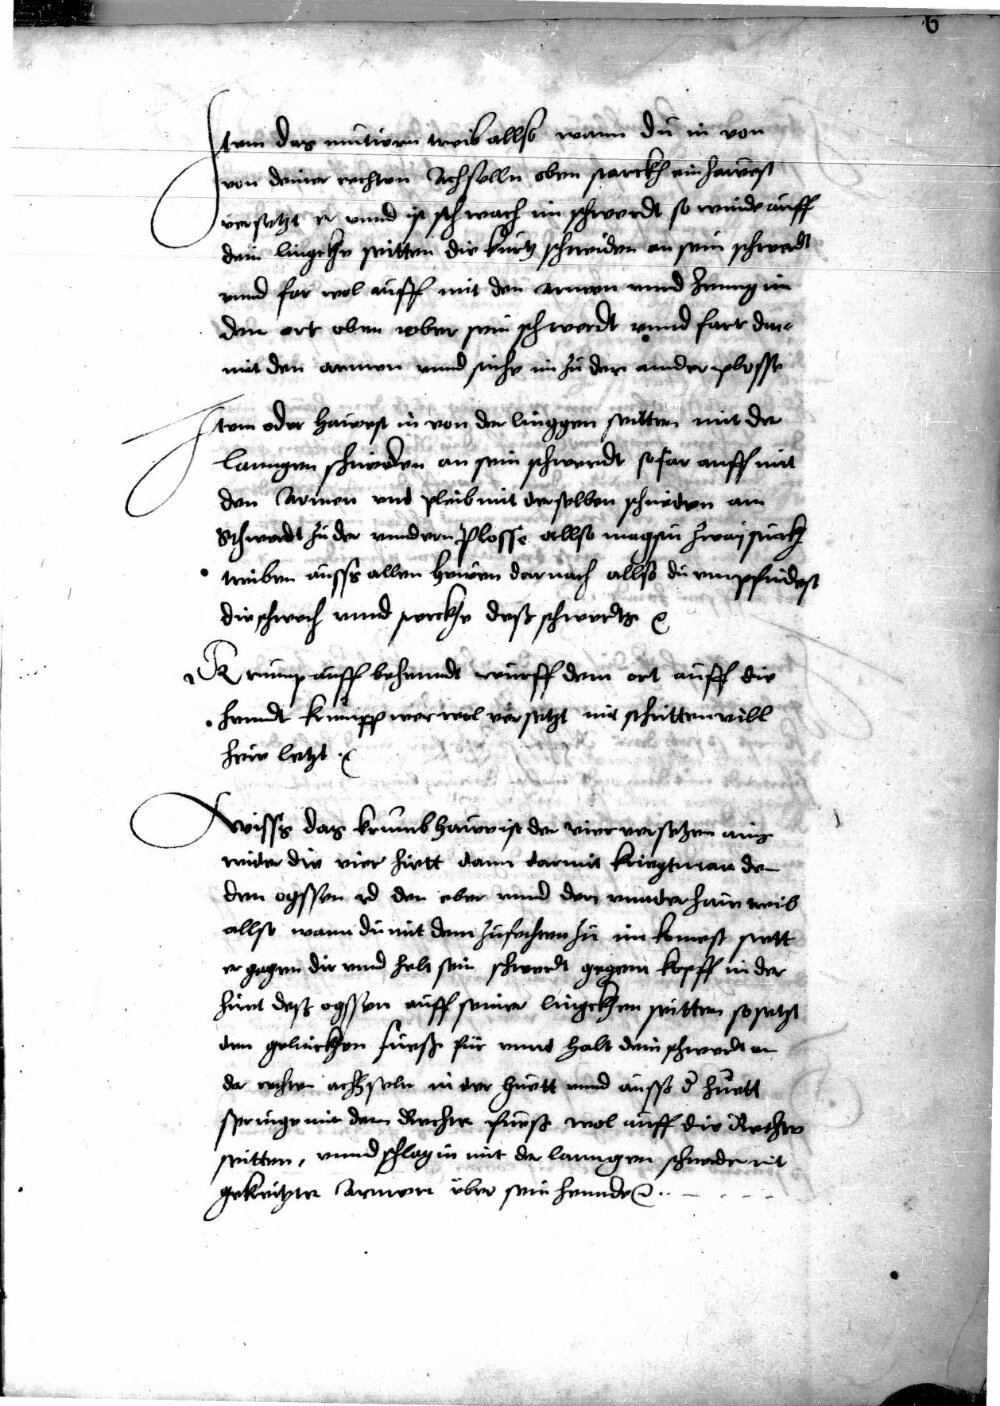 6
Item das mutiern treib allso wann du in von
von deiner rechten Achselln oben starckh einhawest
versetzt er unnd ist schwach im schwerdt so winde auff
dein lingckhe seitten die kurtz schneiden an sein schwerdt
unnd far wol auff mit den armen unnd heng im
den ort oben uber sein schwerdt unnd fart dar
mit den armen unnd stich im zu der ander plosse
Item oder hawest in von der linggen seitten mit der
lanngen schneiden an sein schwerdt so far auff mit
den Armen und pleib mit derselben schneiden am
Schwerdt zu der unndern plosse allso magstu zwaj stuckh
treiben auss allen hewen darnach allso du empfindest
die schwech unnd sterckhe desz schwerdts
Krump auff behenndt wurff dein ort auff die
hendt krump wer wol versetzt mit schritten vill
hew letzt
Wiss das krumb haw ist der vier versetzen ains
wider die vier huett dann darmit kriegt man den
den ogssen und den eber unnd den unnderhaw treib
allso wann du mit dem zufechten zu im komest stett
er gegen dir unnd helt sein schwerdt gegem kopff in der
huet desz ogssen auff seiner lingckhen seitten so setzt
den gelinckhen fuesz für unnd halt dein schwerdt an
der rechten achsseln in der huett unnd auss der huett
springe mit dem Rechten fuesz wol auff die Rechte
seitten, unnd schlag in mit der lanngen schneide mit
gekreitzten Armen über sein hennde